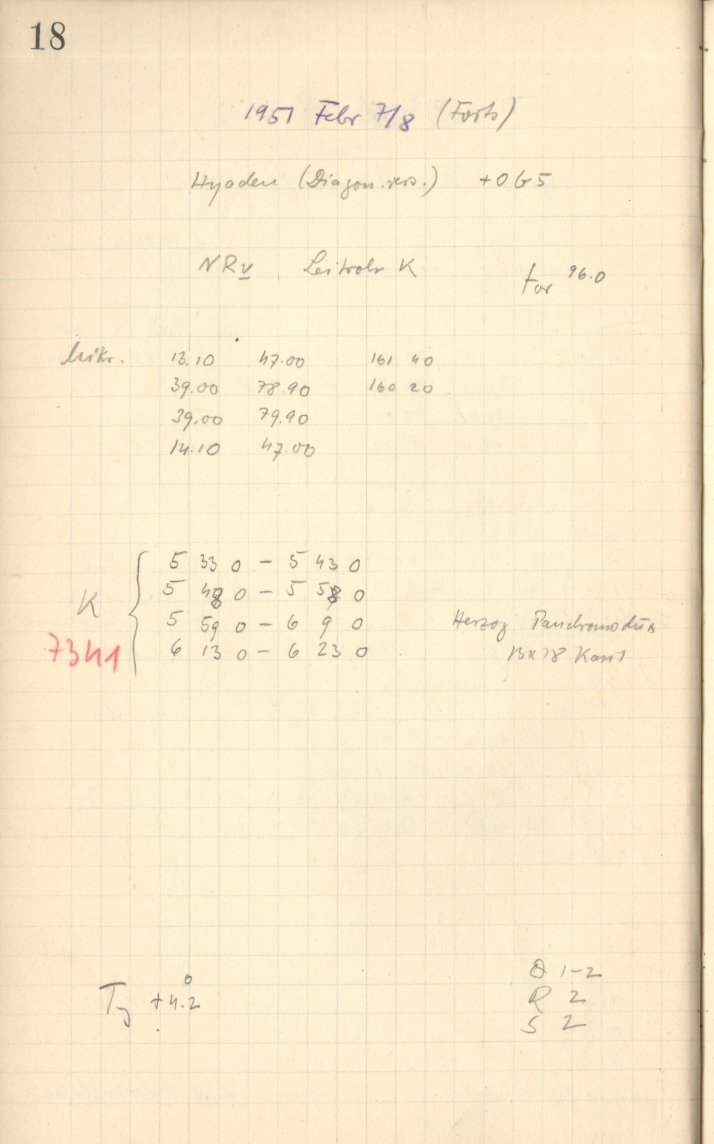 18
1951 Febr 7/8 (Forts)
Hyaden (Diagon.vers.) + OG5
NRv Leitrohr K for 96.0
Mikr. 13.10 47.00 161 40
39.00 78.90 160 20
39.00 79.90
14.10 47.00
5 33 0 - 5 43 0
5 48 0 - 5 58 0
K
5 59 0 - 6 9 0 Herzog
7341
6 13 0 - 6 23 0 13x18
1-2
T +4.2° R 2
S 2